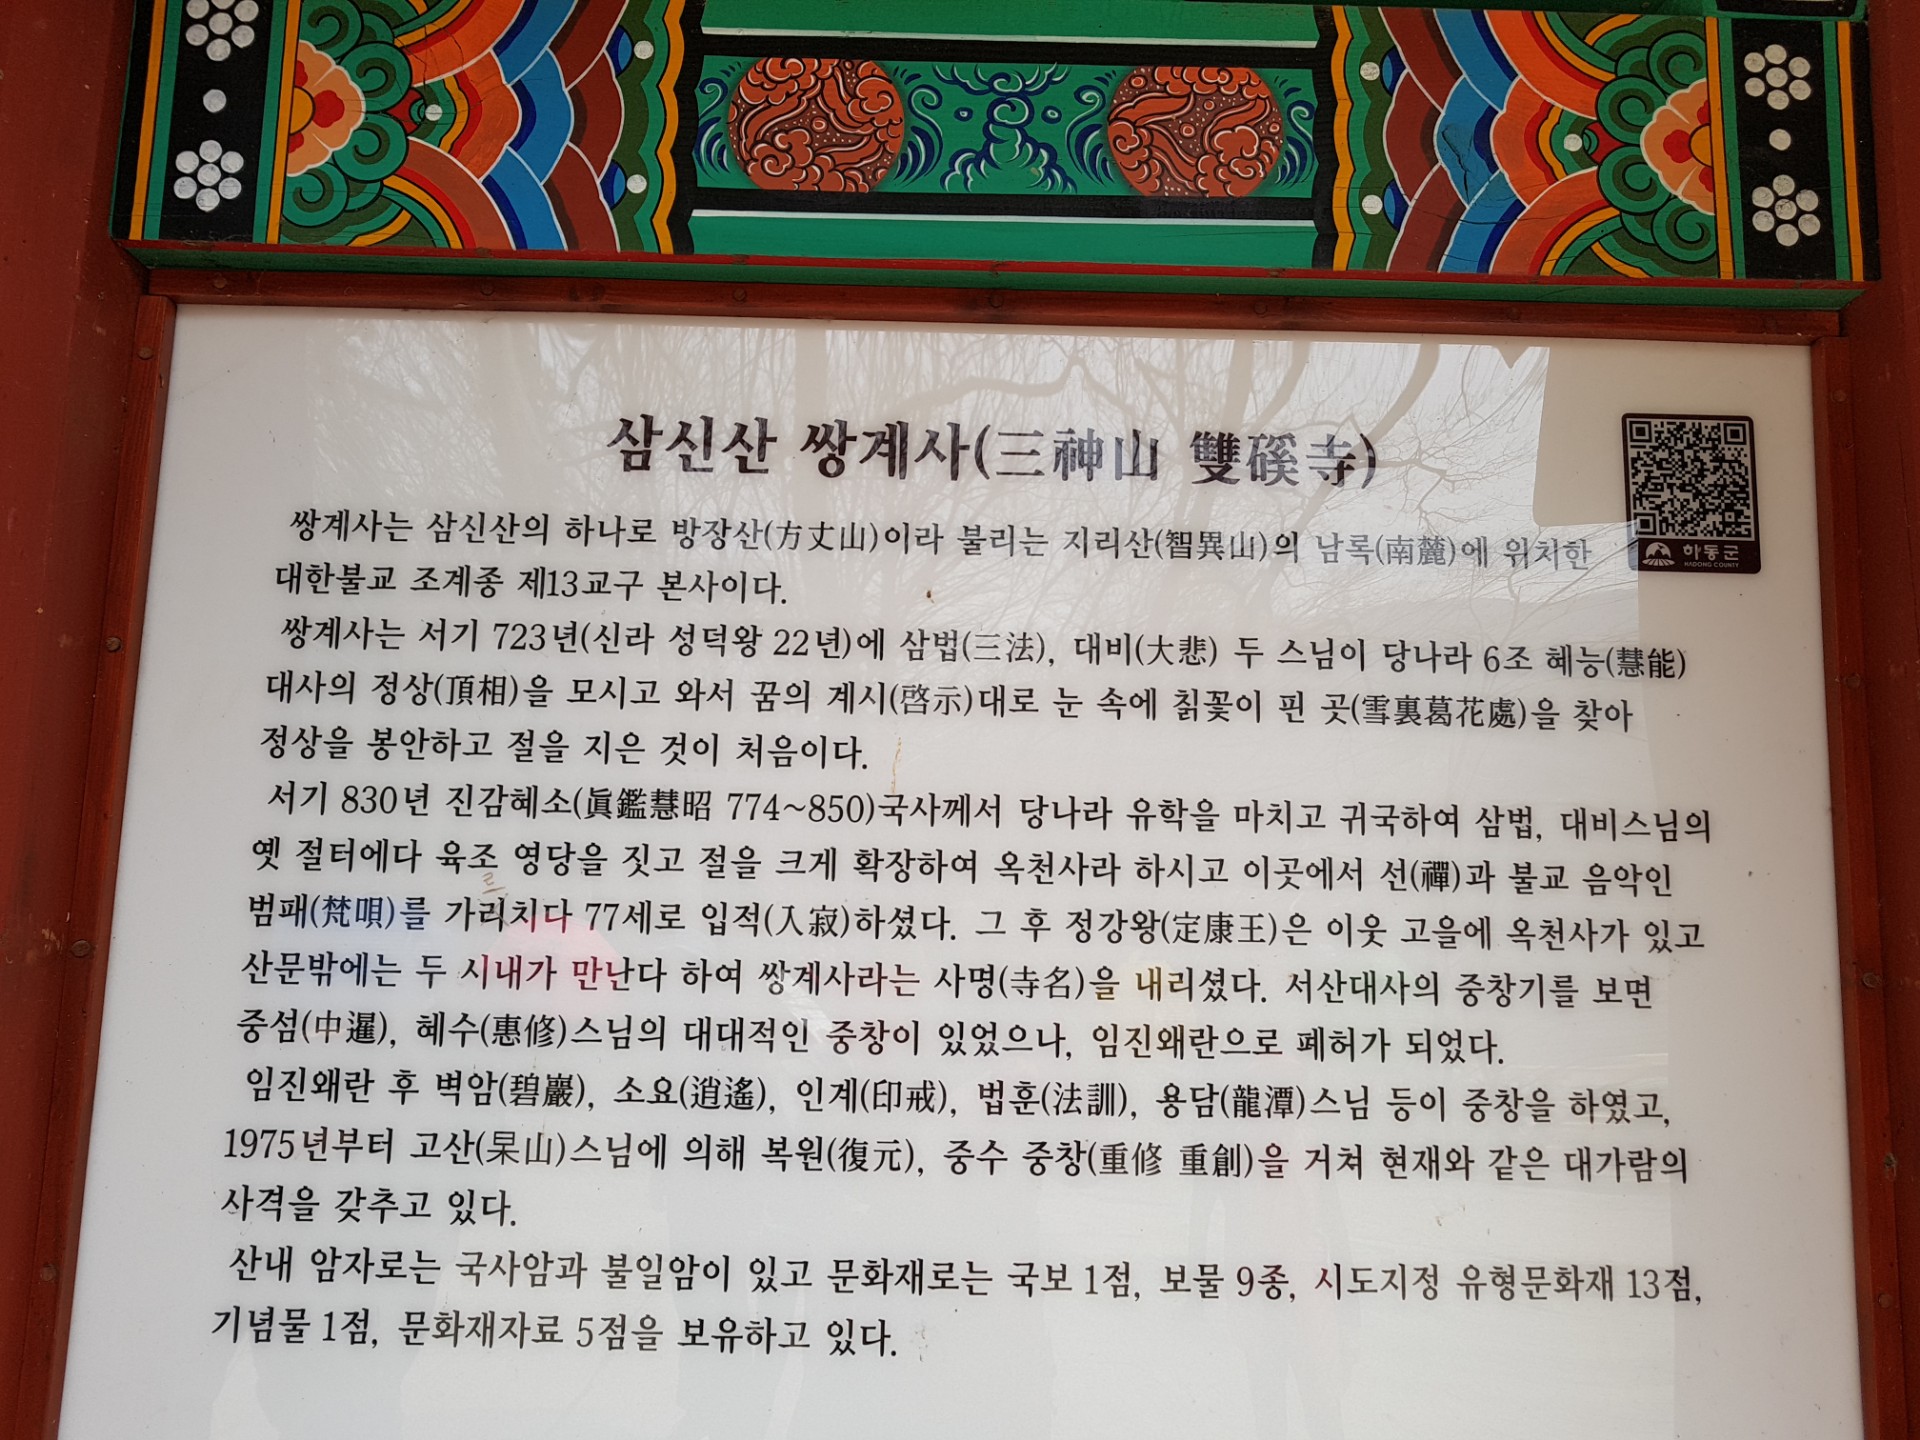 삼신산 쌍계사(三神山 雙磎寺)
하동군
HADONG COUNTY
쌍계사는 삼신산의 하나로 방장산(方丈山)이라 불리는 지리산(智異山)의 남록(南麓)에 위치한
대한불교 조계종 제13교구 본사이다.
쌍계사는 서기 723년(신라 성덕왕 22년)에 삼법(三法), 대비(大悲) 두 스님이 당나라 6조 혜능(慧能)
대사의 정상(頂相)을 모시고 와서 꿈의 계시(啓示)대로 눈 속에 칡꽃이 핀 곳(雪裏葛花處)을 찾아
정상을 봉안하고 절을 지은 것이 처음이다.
서기 830년 진감혜소(眞鑑慧昭 774~850)국사께서 당나라 유학을 마치고 귀국하여 삼법, 대비스님의
옛 절터에다 육조 영당을 짓고 절을 크게 확장하여 옥천사라 하시고 이곳에서 선(禪)과 불교 음악인
범패(梵唄)를 가리치다 77세로 입적(入寂)하셨다. 그 후 정강왕(定康王)은 이웃 고을에 옥천사가 있고
산문밖에는 두 시내가 만난다 하여 쌍계사라는 사명(寺名)을 내리셨다. 서산대사의 중창기를 보면
중섬(中暹), 혜수(惠修)스님의 대대적인 중창이 있었으나, 임진왜란으로 폐허가 되었다.
임진왜란 후 벽암(碧巖), 소요(逍遙), 인계(印戒), 법훈(法訓), 용담(龍潭)스님 등이 중창을 하였고,
1975년부터 고산(杲山)스님에 의해 복원(復元), 중수 중창(重修 重創)을 거쳐 현재와 같은 대가람의
사격을 갖추고 있다.
산내 암자로는 국사암과 불일암이 있고 문화재로는 국보 1점, 보물 9종, 시도지정 유형문화재 13점,
기념물 1점, 문화재자료 5점을 보유하고 있다.